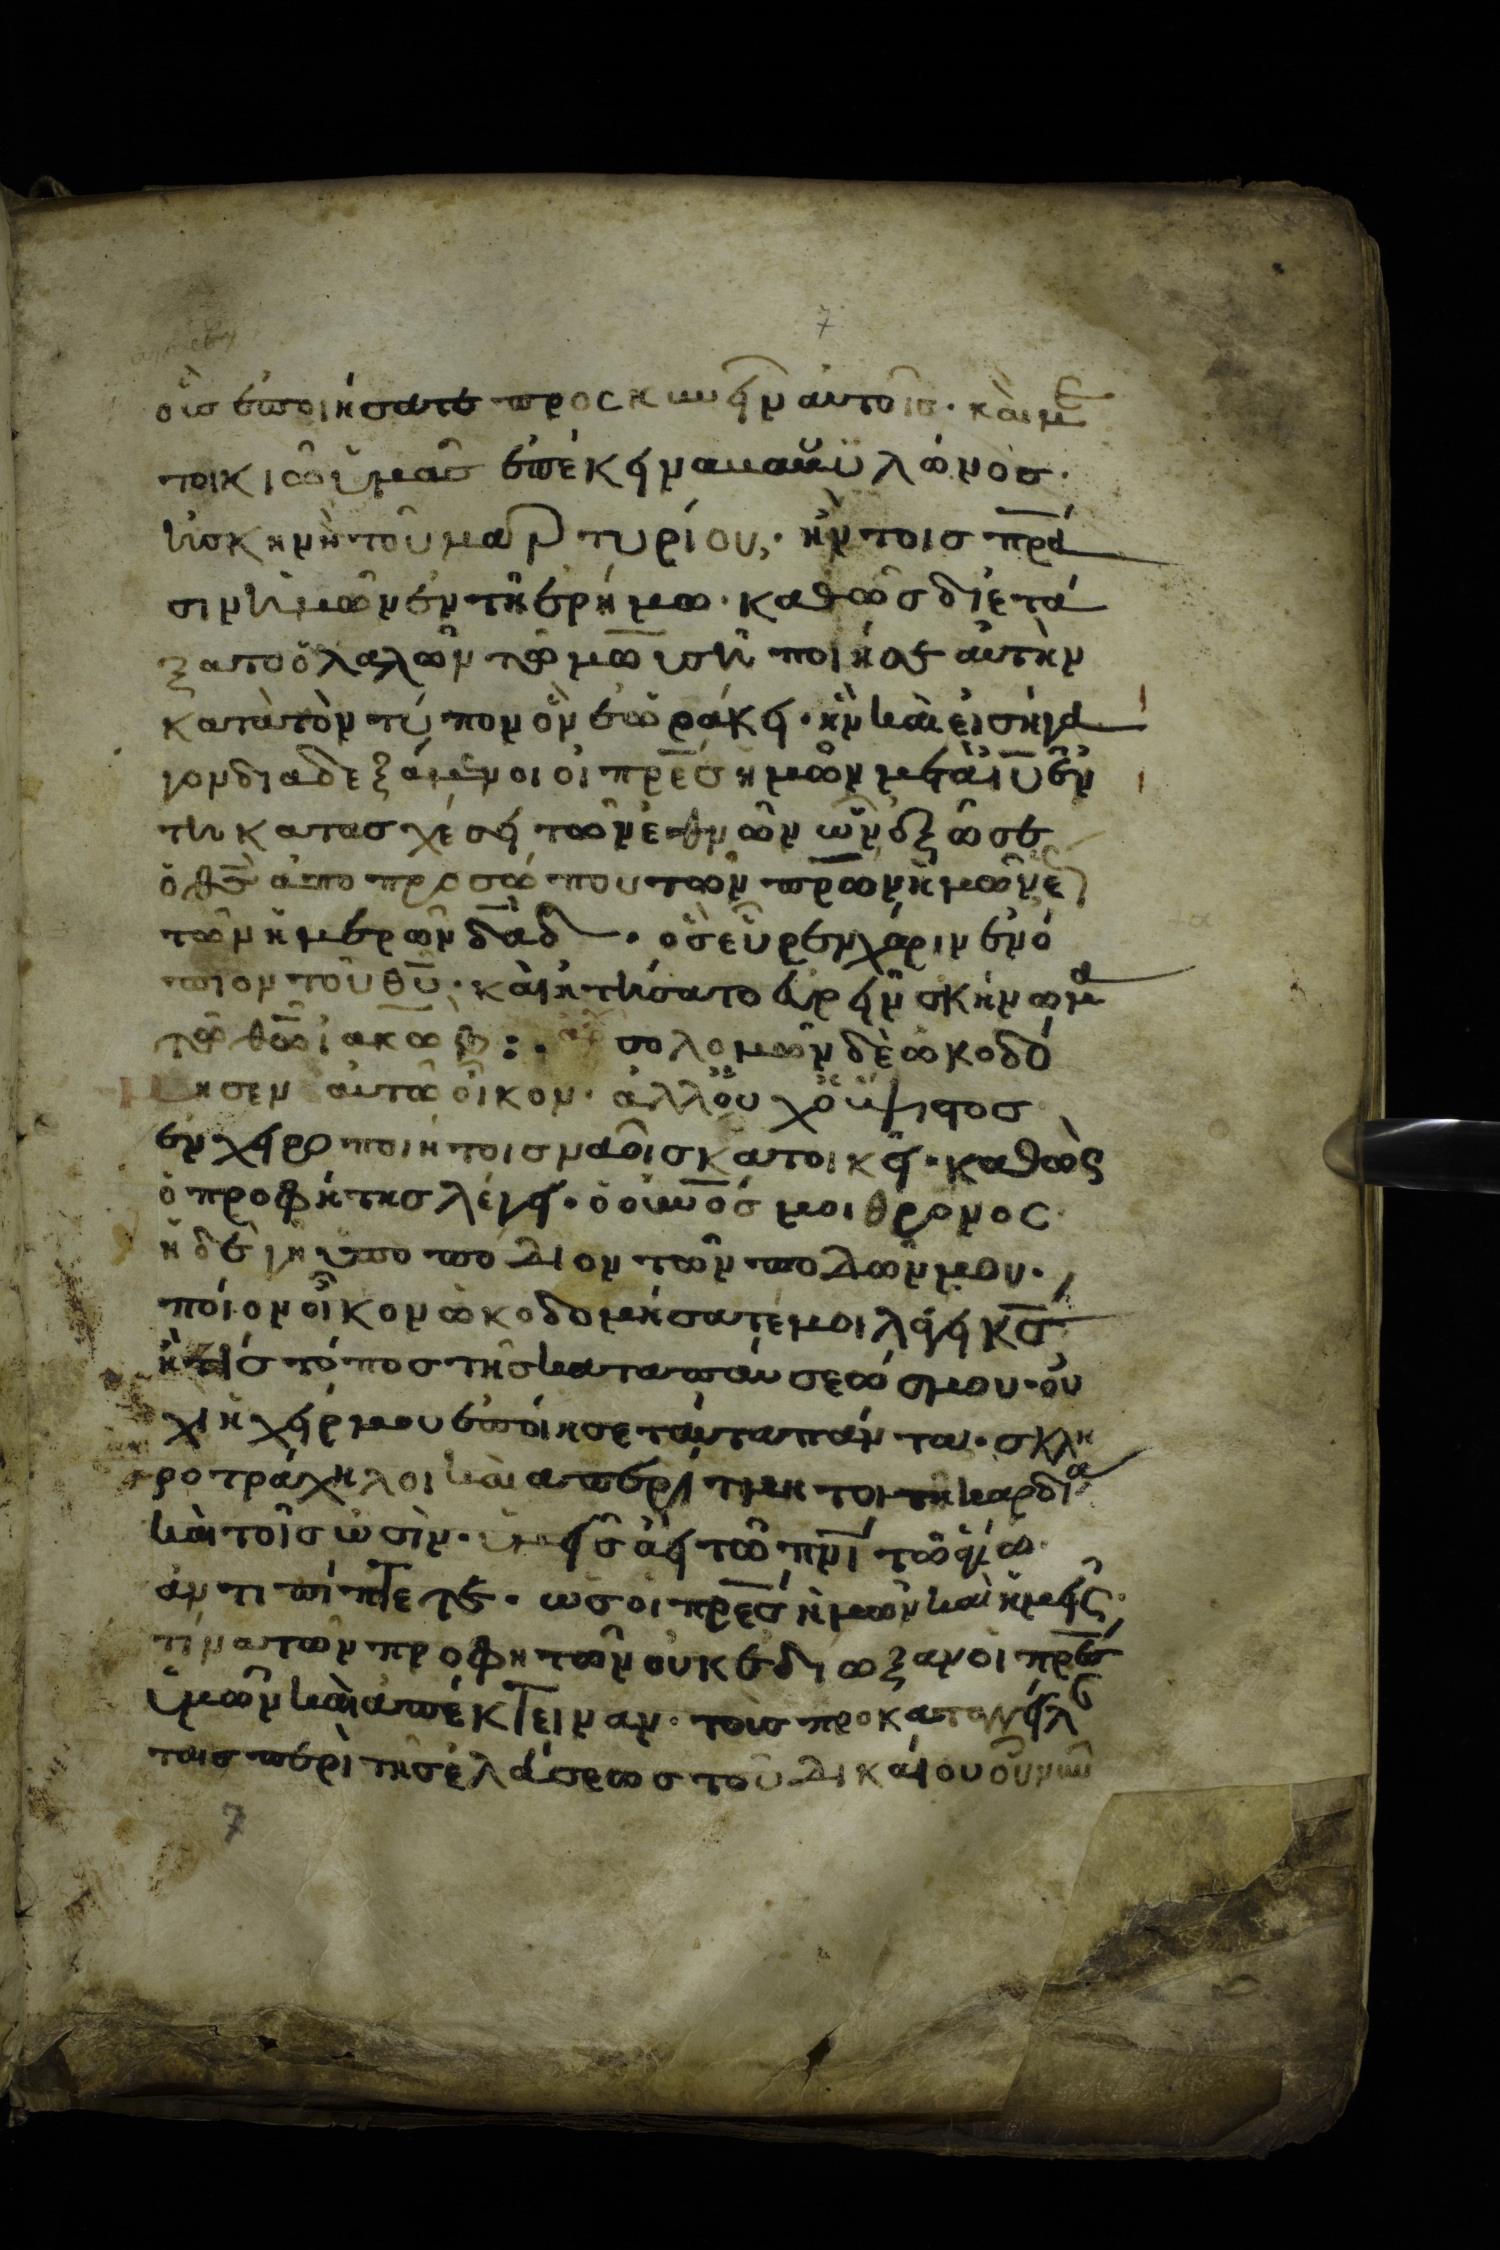 7
οὓς ἐποιήσατε προσκυνεῖν αὐτοῖς· καὶ με
τοικιῶ ὑμᾶς ἐπέκεινα βαβυλῶνος·
ἡ σκηνὴ τοῦ μαρτυρίου· ἦν τοῖς πρά
σιν ἡμῶν ἐν τῇ ἐρήμω· καθὼς διετά
ξατο ὁ λαλῶν τῶ μωϋσῆ ποιῆσαι αὐτὴν
κατὰ τὸν τύπον ὃν ἑωράκει· ἣν καὶ εἰσήγα
γον διαδεξάμενοι οἱ πρες ἡμῶν μετὰ ιυ ἐν
τῆ κατασχέσει τῶν ἐθνῶν ὧν ἐξῶσε
ὁ θς ἀπὸ προσώπου τῶν πρων ἡμῶν ἕως
τῶν ἡμερῶν δαδ· ὃς εὗρεν χάριν ἐνώ
πιον τοῦ θυ· καὶ ἠτήσατο εὑρεῖν σκήνωμα
τῶ θω ἰακώβ:· σολομῶν δὲ ὠκοδό
μησεν αὐτῶ οἶκον· ἀλλ' οὐχ ὁ ὕψιστος
ἐν χειροποιήτοις ναοῖς κατοικεῖ· καθὼς
ὁ προφήτης λέγει· ὁ οὐνός μοι θρόνος
ἡ δὲ γῆ ὑποπόδιον τῶν ποδῶν μου·
ποῖον οἶκον ὠκοδομήσατέ μοι λέγει κς
ἢ τίς τόπος τῆς καταπαύσεώς μου· οὐ
χὶ ἡ χείρ μου ἐποίησε ταῦτα πάντα· σκλη
ροτράχηλοι καὶ ἀπερίτμητοι τῆ καρδία
καὶ τοῖς ὠσὶν· ὑμεῖς ἀεὶ τῶ πνι τῶ ἁγίω
ἀντιπίπτετε· ὡς οἱ πρες ἡμῶν καὶ ἡμεῖς·
τίνα τῶν προφητῶν οὐκ ἐδίωξαν οἱ πρες
ὑμῶν καὶ ἀπέκτειναν· τοὺς προκαταγγείλαν
τας περὶ τῆς ἐλεύσεως τοῦ δικαίου οὗ νῦν
7